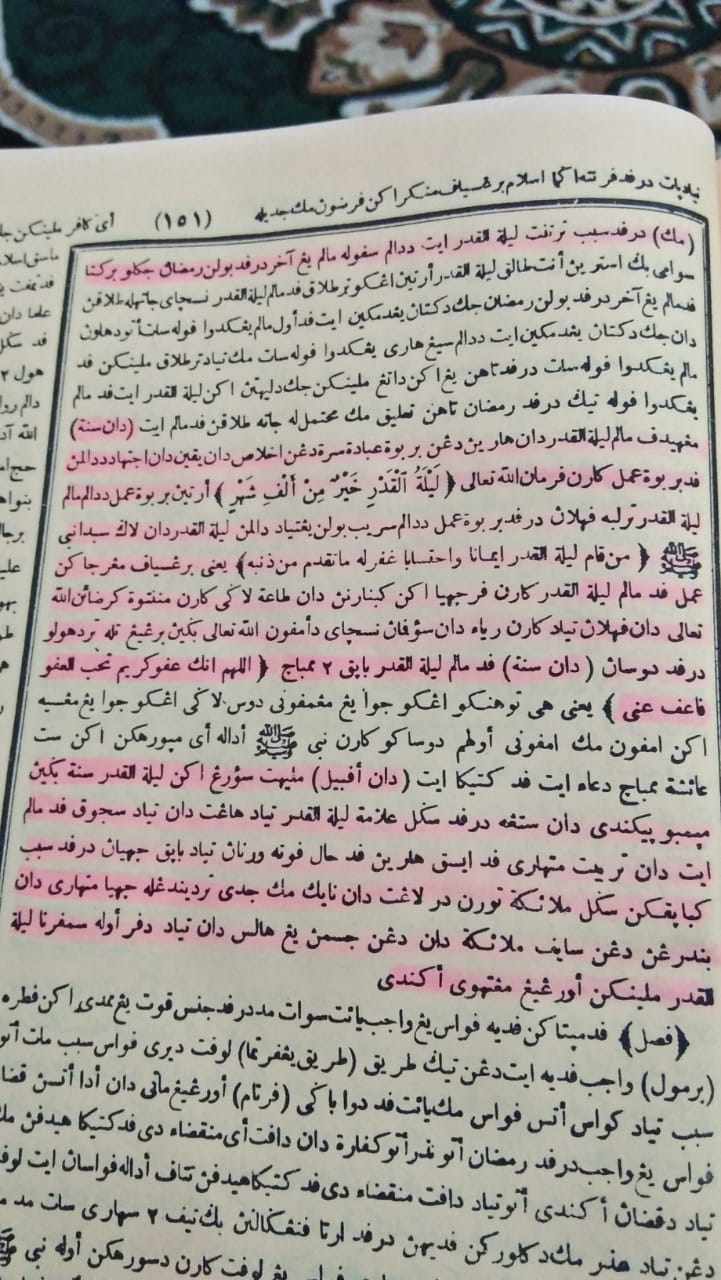 نيادبات درفد فرتتم اكما اسلام برغسياف منكراكن فرضون مك جديله (١٥١) أي كافر ملينكن جا
(مك) درفد سبب ترتفت ليلة القدر ايت ددالم سفوله مالم يڠ آخر درفد بولن رمضان جكلو بركتا
سوامي بك استرين أنت طالق ليلة القدر أرتين اڠكو ترطلاق فد مالم ليلة القدر نسچاي جاتهله طلاقن
فد مالم يڠ آخر درفد بولن رمضان جك دكتان يڤد مكين ايت فد أول مالم يڠكدوا فوله سات أتو دهولون
دان جك دكتان يڤد مكين ايت ددالم سيڠ هاري يڠكدوا فوله سات مك تياد ترطلاق ملينكن فد
مالم يڠكدوا فوله سات درفد تاهن يڠ اكن داتڠ ملينكن جك دليهتن اكن ليلة القدر ايت فد مالم
يڠكدوا فوله تيك درفد رمضان تاهن تعليق مك محتمل له جاته طلاقن فد مالم ايت (دان سنة)
مڠهيدف مالم ليلة القدر دان هارين دڠن بربوة عبادة سرة دڠن اخلاص دان يقين دان اجتهاد ددالمن
فد بربوة عمل كارن فرمان الله تعالى ﴿ لَيْلَةُ ٱلْقَدْرِ خَيْرٌ مِنْ أَلْفِ شَهْرٍ ﴾ أرتين بربوة عمل ددالم مالم
ليلة القدر ترلبه فهلان درفد بربوة عمل ددالم سريب بولن يڠتياد دالمن ليلة القدر دان لاك سبدا نبي
ﷺ ﴿ من قام ليلة القدر ايمانا واحتسابا غفر له ما تقدم من ذنبه ﴾ يعني برغسياف مڠرجاكن
عمل فد مالم ليلة القدر كارن فرجهيا اكن كبنارنن دان طاعة لاكي كارن مننتوة كرضائن الله
تعالى دان فهلان تياد كارن رياء دان سؤفان نسچاي دأمفون الله تعالى بكين برغيڠ تله تردهولو
درفد دوسان (دان سنة) فد مالم ليلة القدر بايق ٢ ممباج ﴿ اللهم انك عفو كريم تحب العفو
فاعف عني ﴾ يعني هي توهنكو اڠكو جوا يڠ مڠمفوني دوس لاكي اڠكو جوا يڠ مڠسيه
اكن امفون مك امفوني أولهم دوساكو كارن نبي ﷺ أداله أي مپورهكن اكن ست
عائشة ممباج دعاء ايت فد كتيكا ايت (دان أفبيل) مليهت سؤرڠ اكن ليلة القدر سنة بكين
مپمبوپيكندي دان ستڠه درفد سكل علامة ليلة القدر تياد هاڠت دان تياد سجوق فد مالم
ايت دان تربيت متهاري فد ايسق هارين فد حال فوته ورنان تياد بايق جهيان درفد سبب
كباپقكن سكل ملائكة تورن در لاڠت دان نايك مك جدي ترديندڠله جهيا متهاري دان
بندرڠن دڠن سايف ملائكة دان دڠن جسمن يڠ هالس دان تياد دفر أوله سمفرنا ليلة
القدر ملينكن أورڠيڠ مڠتهوي أكندي
﴿فصل﴾ فد مپتاكن فديه فواس يڠ واجب يائت سوات مد درفد جنس قوت يڠ ممدي اكن فطره
(برمول) واجب فديه ايت دڠن تيك طريق (طريق يڠفرتما) لوفت ديري فواس سبب مات أتو
سبب تياد كواس أتس فواس مك يائت فد دوا باكي (فرتام) أورڠيڠ ماتي دان أدا أتسن قضا
فواس يڠ واجب درفد رمضان أتو نذر أتو كفارة دان دافت أي منقضاء دي فد كتيكا هيدفن مك
تياد دقضان أكندي أتو تياد دافت منقضاء دي فد كتيكا هيدفن تتاف أداله فواسان ايت لوف
دڠن تياد عذر مك دكلوركن فديهن درفد ارتا فنڠكالنن بك تيف ٢ سهاري سات مد م